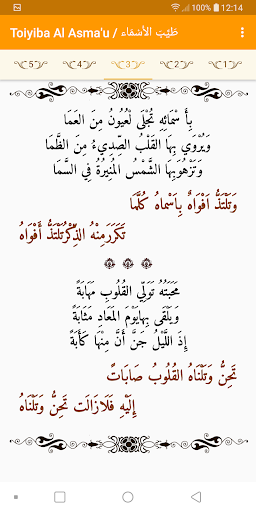 12:14
Toiyiba Al Asma'u / طَيِّبَ الأَسْمَاء
٥ ٤ ٣ ٢ ١
بِأَ سْمَائِهِ تُجْلَى لْعُيُونُ مِنَ الْعَمَا
وَيُرْوَي بِهَا الْقَلْبُ الصَّدِيءُ مِنَ الظَّمَا
وَتَزْهُوبِهَا الشَّمْسُ الْمُنِيرَةُ فِي السَّمَا
وَتَلْتَذُّ اَفْوَاهٌ بِاَسْمَاهُ كُلَّمَا
تَكَرَرَمِنْهُ الذِّكْرُتَلْتَذُّ أَفْوَاهُ
مَحَبَّتُه تَوَلِّي الْقُلُوبَ مَهَابَةً
وَيَلْقَى بِهايَوْمَ الْمَعَادِ مَثَابَةً
إِذَ اللَّيْلُ جَنَّ أَنَّ مِنْهَا كَآبَةً
تَحِنُّ وَتَلْنَاهُ الْقُلُوبُ صَابَاتٌ
إِلَيْهِ فَلَازَالَت تَحِنُّ وَتَلْنَاهُ